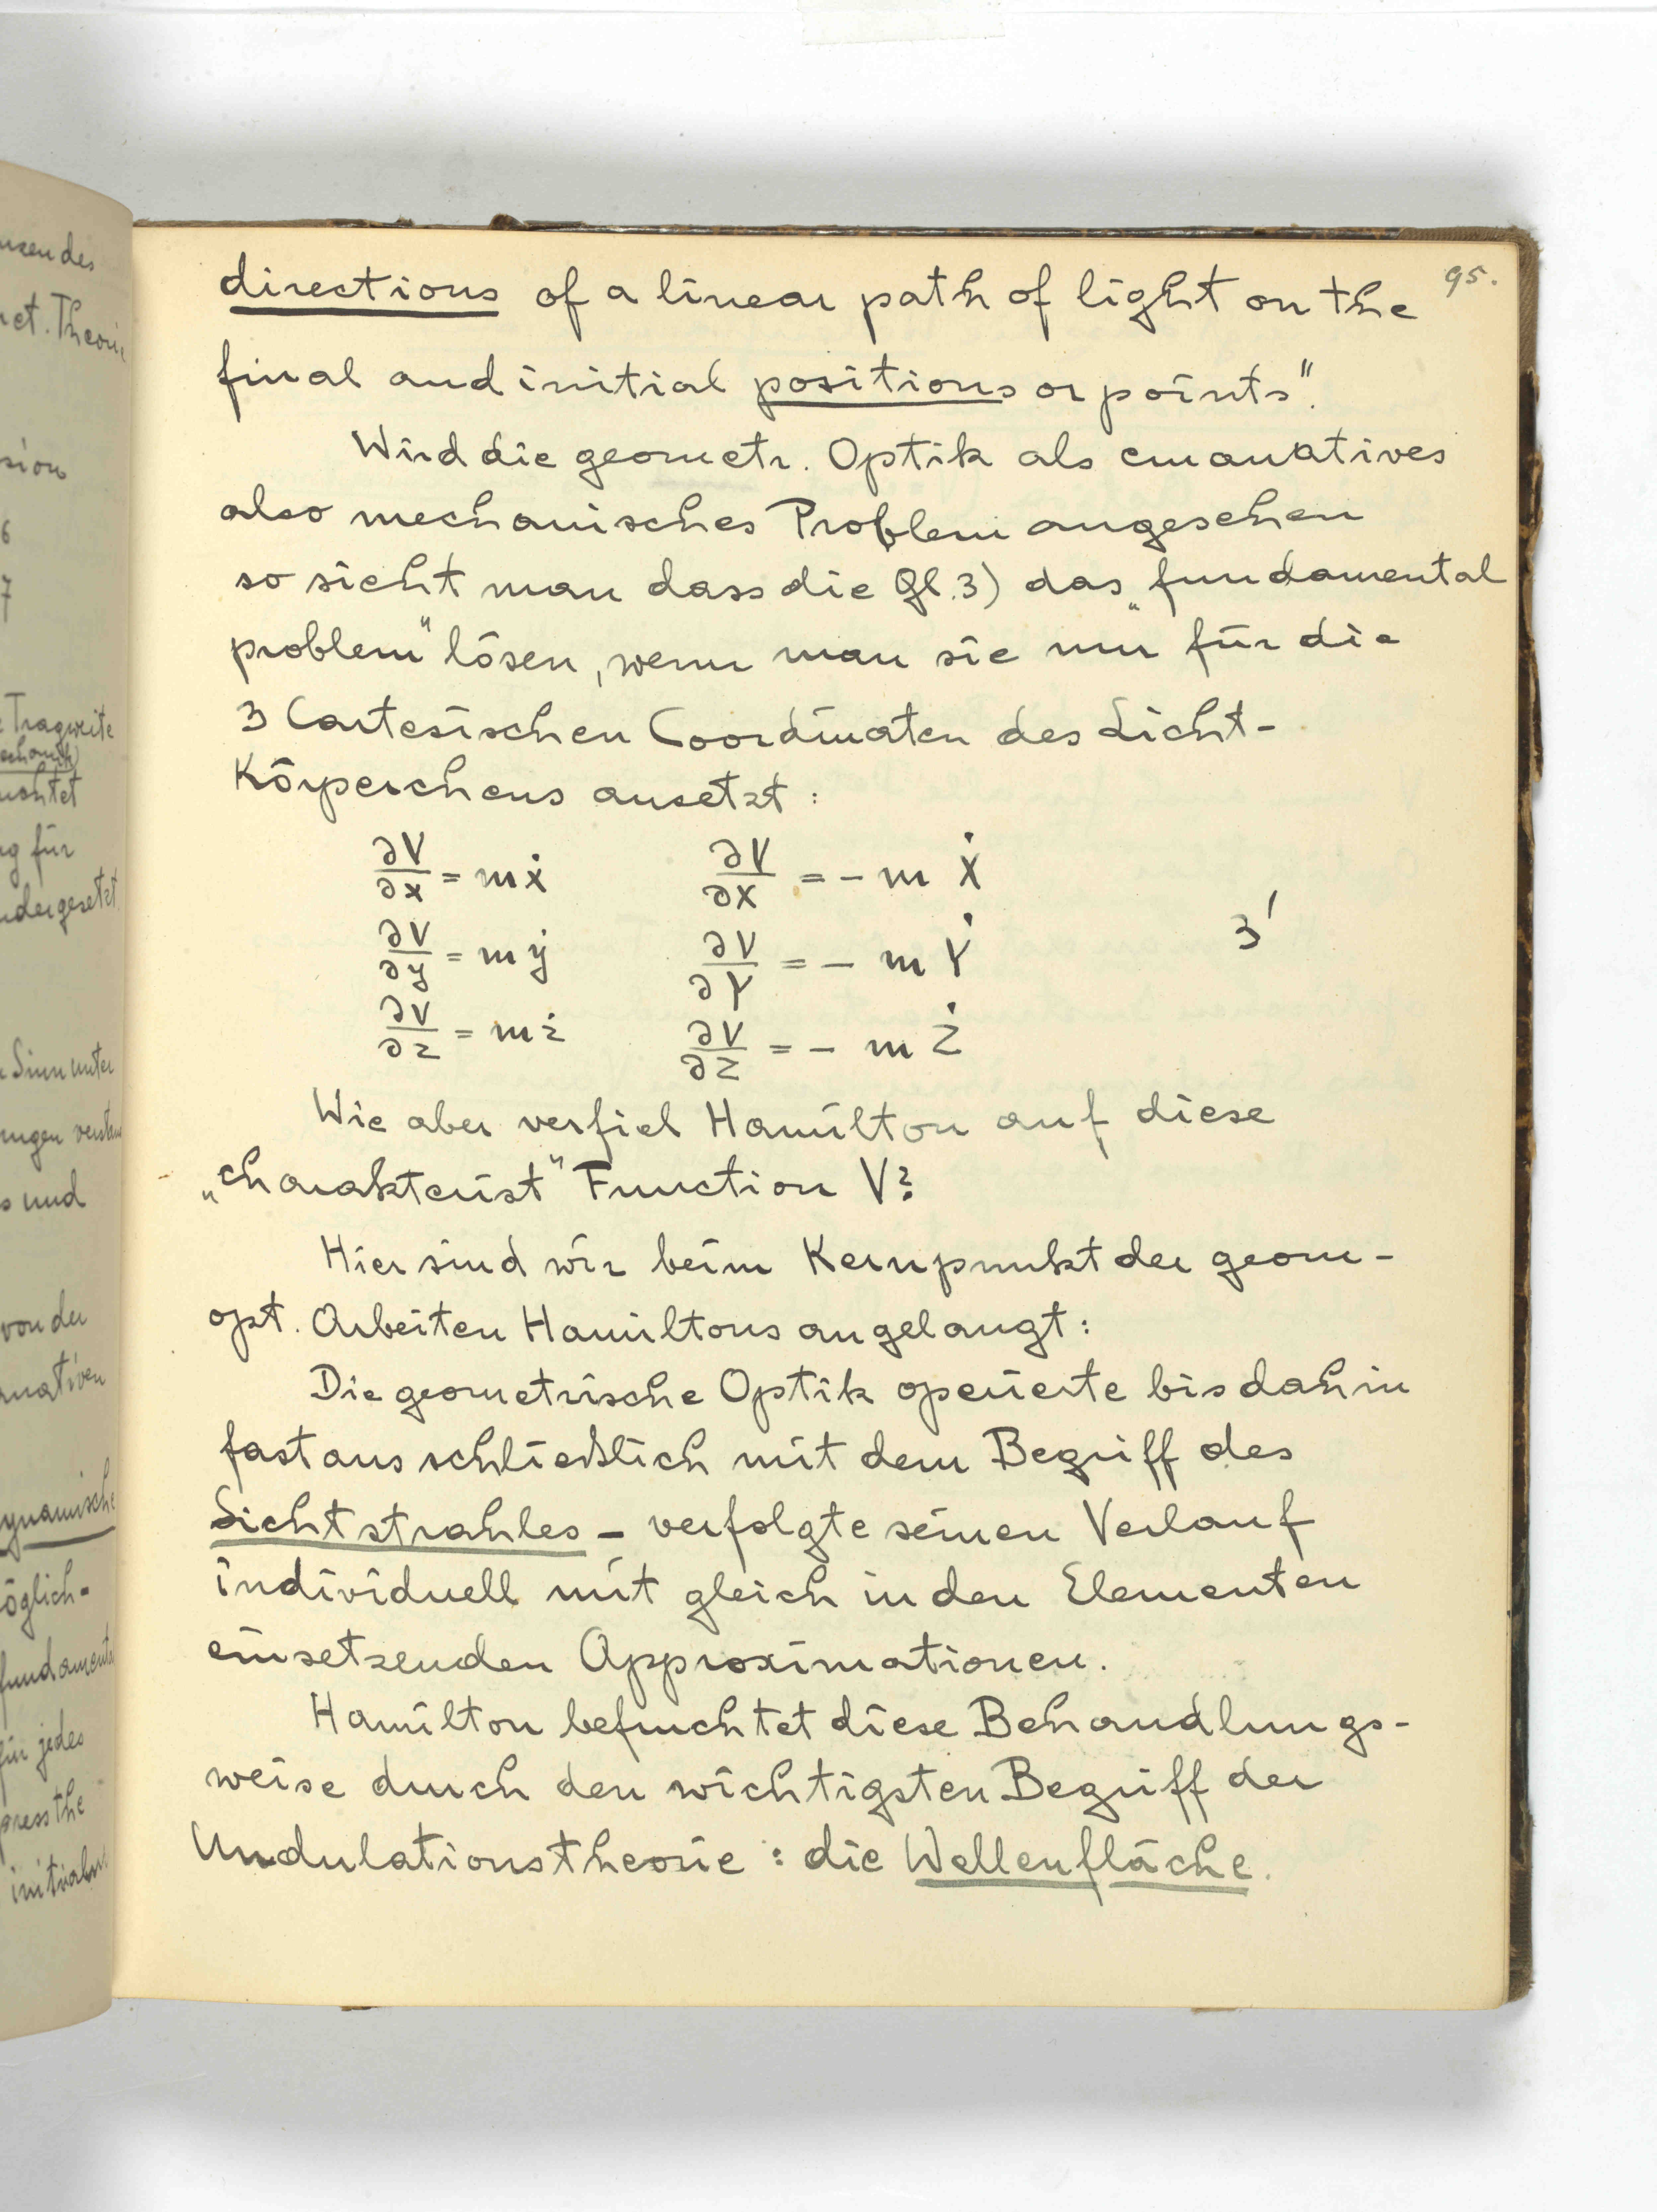 95.
directions of a linear path of light on the
final and initial positions or points".
Wird die geometr. Optik als emanatives
also mechanisches Problem angesehen
so sieht man dass die Gl. 3) das „fundamental
problem" lösen, wenn man sie nur für die
3 Cartesischen Coordinaten des Licht-
Körperchens ansetzt:
∂V/∂x = mẋ ∂V/∂X = - m Ẋ
∂V/∂y = mẏ ∂V/∂Y = - m Ẏ 3'
∂V/∂z = mż ∂V/∂Z = - m Ż
Wie aber verfiel Hamilton auf diese
„charakterist" Function V?
Hier sind wir beim Kernpunkt der geom-
opt. Arbeiten Hamiltons angelangt:
Die geometrische Optik operierte bis dahin
fast ausschließlich mit dem Begriff des
Lichtstrahles - verfolgte seinen Verlauf
individuell mit gleich in den Elementen
einsetzenden Approximationen.
Hamilton befruchtet diese Behandlungs-
weise durch den wichtigsten Begriff der
Undulationstheorie: die Wellenfläche.